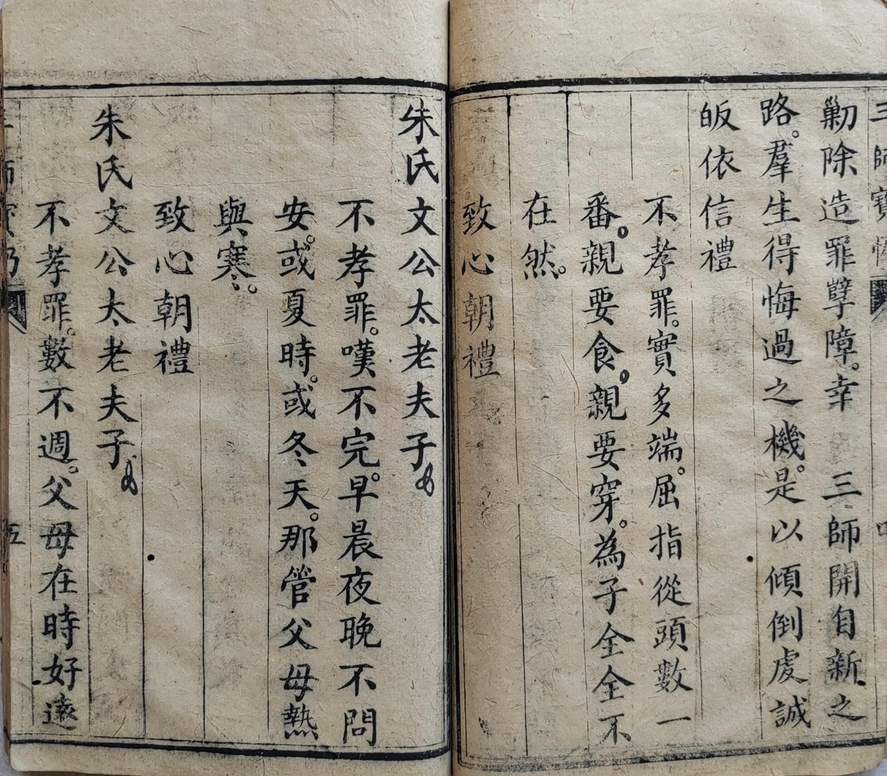 三師寶懺
四
勦除造罪孽障。幸 三師開自新之
路。羣生得悔過之機。是以傾倒虔誠
皈依信禮
不孝罪。實多端。屈指從頭數一
番。親要食。親要穿。為子全全不
在然。
致心朝禮
朱氏文公太老夫子
不孝罪。嘆不完。早晨夜晚不問
安。或夏時。或冬天。那管父母熱
與寒。
致心朝禮
朱氏文公太老夫子
不孝罪。數不週。父母在時好遠
五